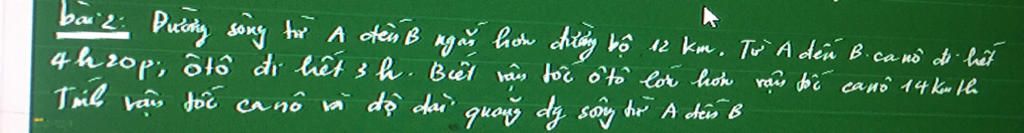 bài 2: Đường sông từ A đến B ngắn hơn đường bộ 12 km. Từ A đến B. ca nô đi hết
4h20p, ôtô đi hết 3h. Biết vận tốc ôtô lớn hơn vận tốc canô 14 km/h
Tính vận tốc canô và độ dài quãng đg sông từ A đến B